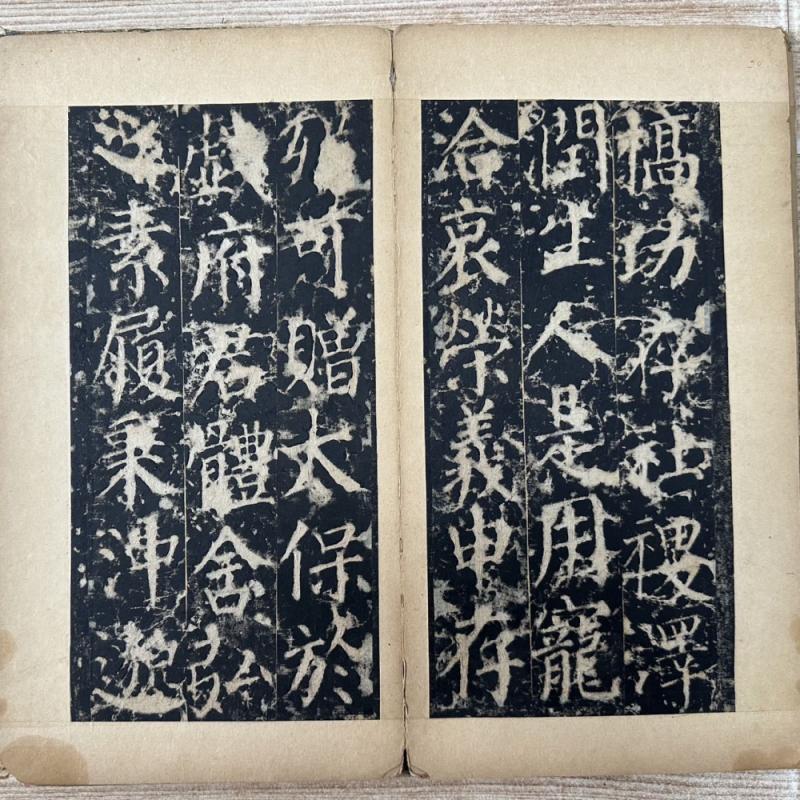 槁功存社稷澤
潤生人是用寵
洽哀榮義申存
歿可贈太保於
戲府君體含弘
之素履秉沖邈